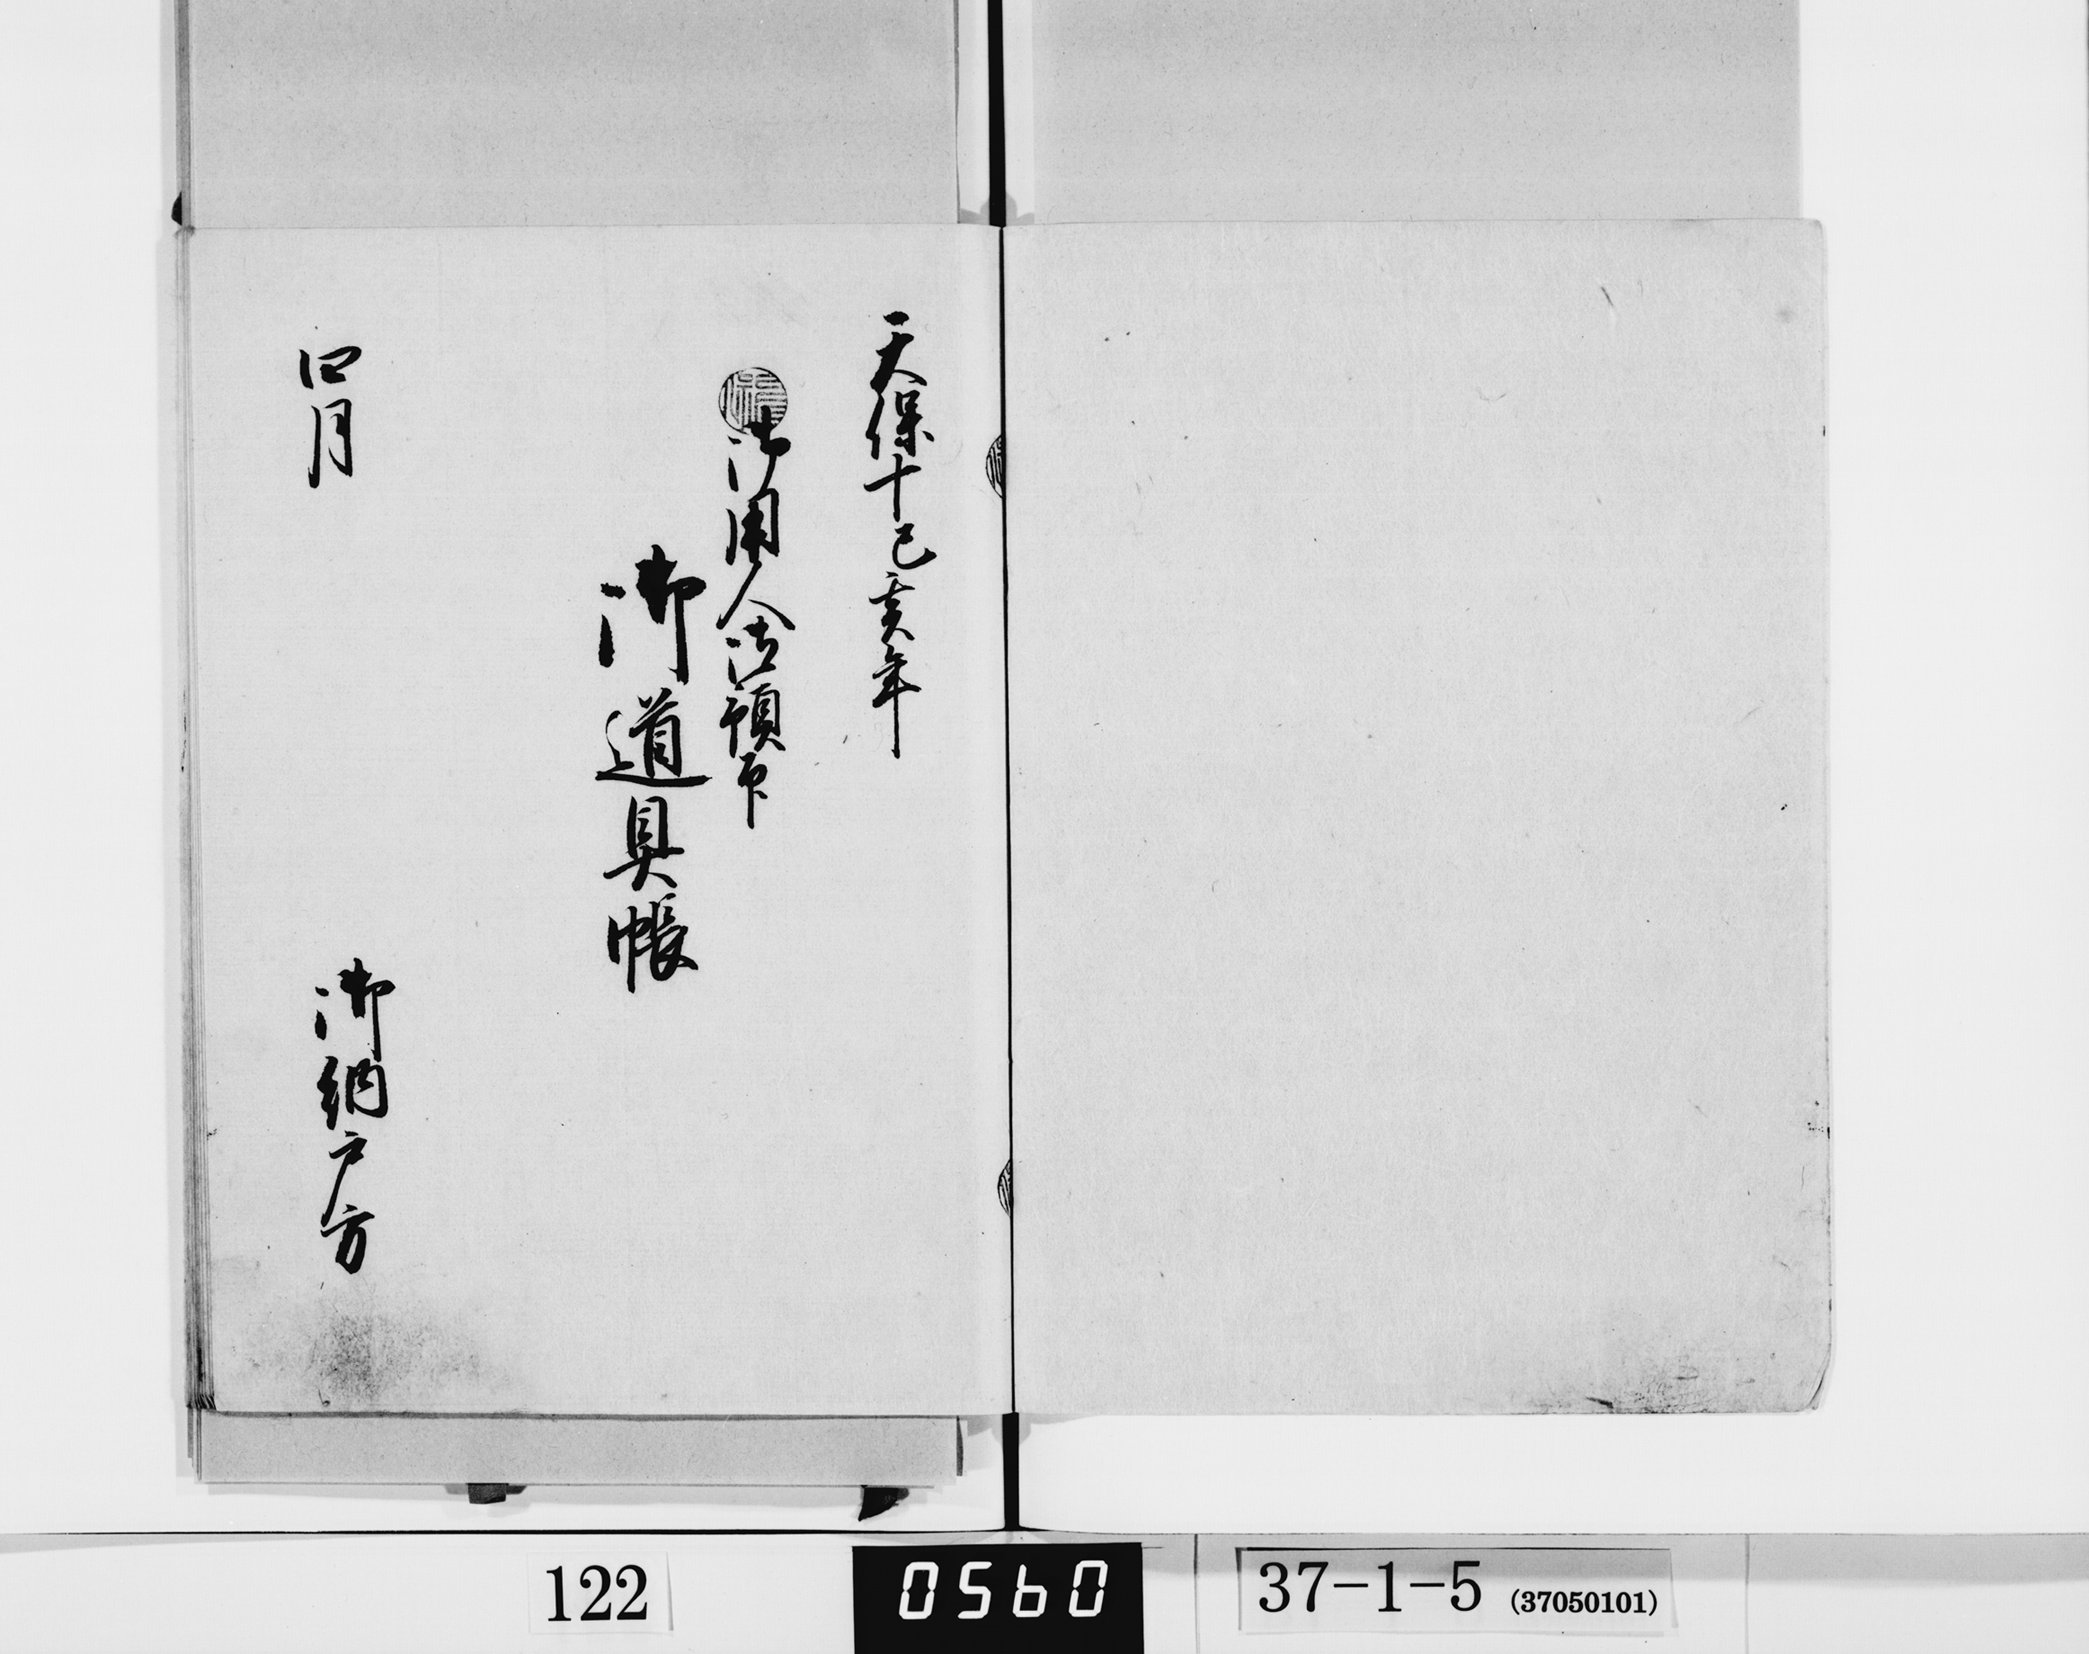 天保十己亥年
御用人御預印
御道具帳
四月
御納戸方
122
0560
37-1-5 (37050101)